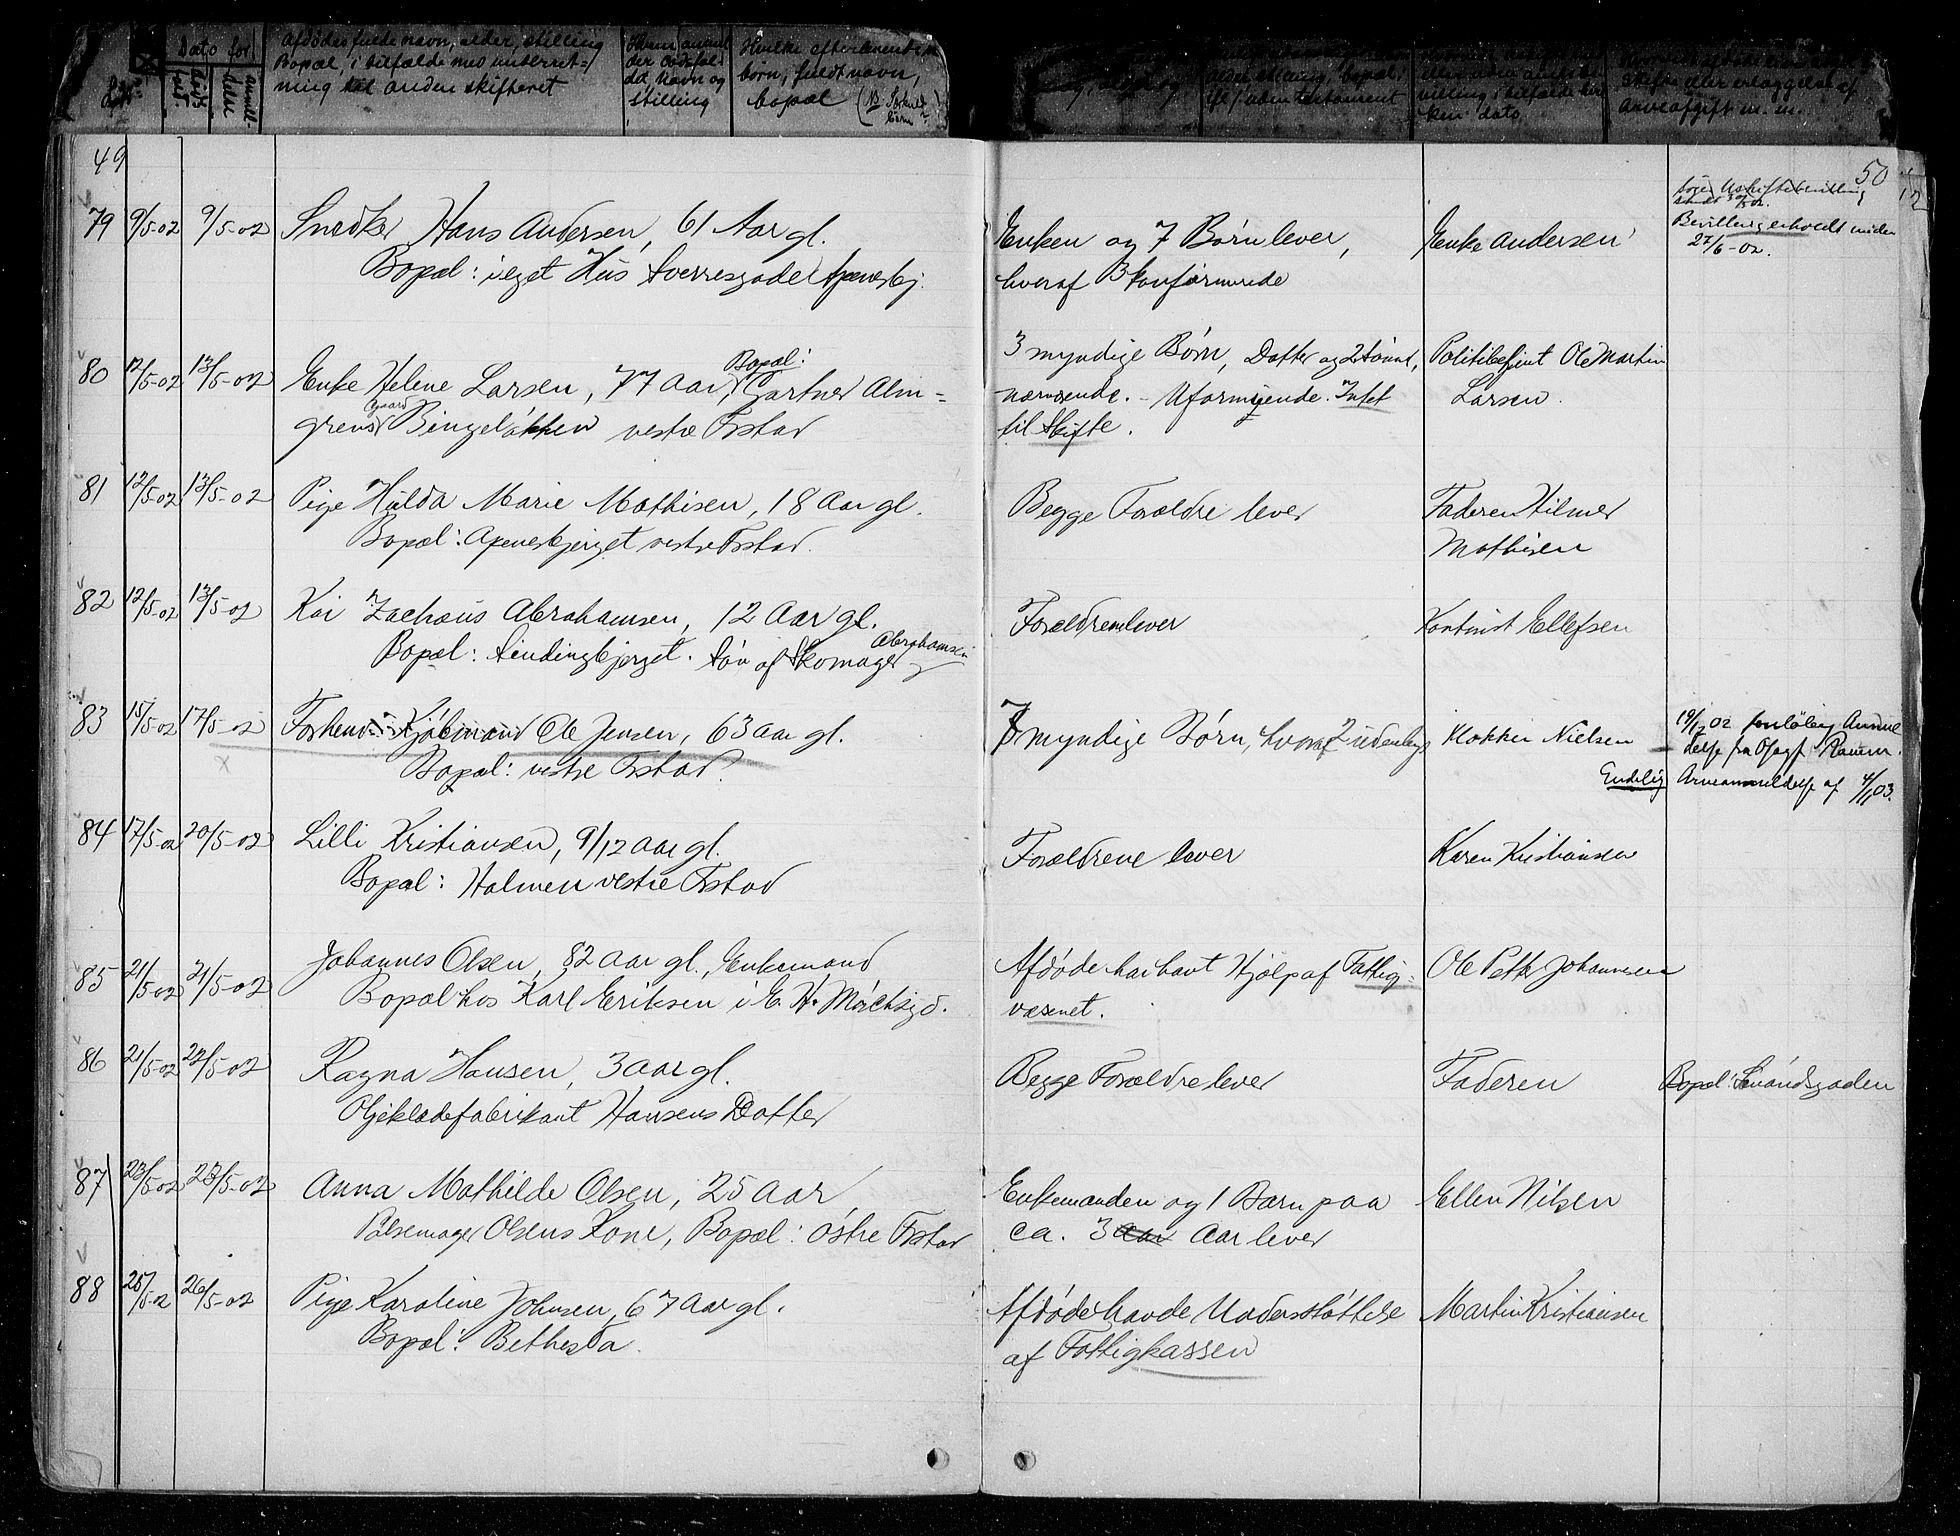 Dato for
Afdødes fulde navn, alder, stilling
Bopæl, i tilfælde med underret-
ning til anden skifteret
død, Navn og
stilling
Hvilke efterlevende
børn, fuldt navn,
bopæl
stilling, bopæl,
uden testament
ken dato
Skifte eller erlæggelse af
Arveafgift m. m.
49
79 9/5-02 9/5-02 Snedker Hans Andersen, 61 Aar gl.
Bopæl: i eget Hus Sverresgade Apenesbj.
80 12/5-02 13/5-02 Enke Helene Larsen, 77 Aar, Bopæl: Gartner Alm-
grens Gaard Bingeløkken vestre Fstad
81 12/5-02 13/5-02 Pige Hulda Marie Mathisen, 18 Aar gl.
Bopæl: Apenesbjerget vestre Fstad.
82 12/5-02 13/5-02 Kai Zachæus Abrahamsen, 12 Aar gl.
Bopæl: Sindingbjerget. Søn af Skomager Abrahamsen
83 15/5-02 17/5-02 Forhenv. Kjøbmand Ole Jensen, 63 Aar gl.
Bopæl: vestre Fstad.
84 17/5-02 20/5-02 Lilli Kristiansen, 9/12 Aar gl.
Bopæl: Holmen vestre Fstad
85 21/5-02 21/5-02 Johannes Olsen, 82 Aar gl., Enkemand
Bopæl hos Karl Eriksen i E. H. Mörchsgd.
86 21/5-02 22/5-02 Ragna Hansen, 3 Aar gl.
Oljeklædefabrikant Hansens Datter
87 23/5-02 23/5-02 Anna Mathilde Olsen, 25 Aar
Pølsemager Olsens Kone, Bopæl: østre Fstad
88 25/5-02 26/5-02 Pige Karoline Johnsen, 67 Aar gl.
Bopæl: Bethesda.
50
Enken og 7 Børn lever, Enke Andersen
hveraf 3 konfirmerede
Bevilling erholdt under
27/6-02.
3 myndige Børn, Datter og 2 Sønner, Politibetjent Ole Martin
nærværende. - Uformuende. Intet Larsen.
til Skifte.
Begge Forældre lever Faderen Hilmer
Mathisen
Forældrene lever Ellefsen
7 myndige Børn, hvoraf 2 udenlands Klokker Nielsen
19/12 02 foreløbig Anmel
delse fra O/sagf. Ramm.
Endelig Arveanmeldelse af 4/11 03.
Forældrene lever Karen Kristiansen
Afdøde har havt Hjælp af Fattig- Ole Petter Johannesen
væsenet.
Begge Forældre lever Faderen Bopæl: Smedsgaden
Enkemanden og 1 Barn paa Ellen Nilsen
ca. 3 Aar Aar lever
Afdøde havde Understøttelse Martin Kristiansen
af Fattigkassen